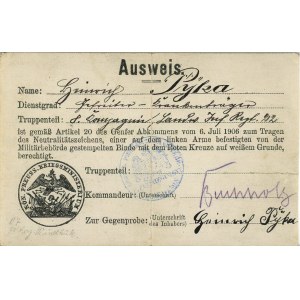 Ausweis.
Name: Heinrich Pyka
Dienstgrad:
Truppenteil: 8. Compagnie, Landw. Inf. Regt.
Ist gemäß Artikel 20 des Genfer Abkommens vom 6. Juli 1906 zum Tragen
des Neutralitätszeichens, einer auf dem linken Arme befestigten von der
Militärbehörde gestempelten Binde mit dem Roten Kreuze auf weißem Grunde,
berechtigt.
Truppenteil:
Kommandeur: (Unterschrift) Buchholz
Zur Gegenprobe: (Unterschrift des Inhabers) Heinrich Pyka
KÖN. PREUSS. KRIEGSMINISTERIUM